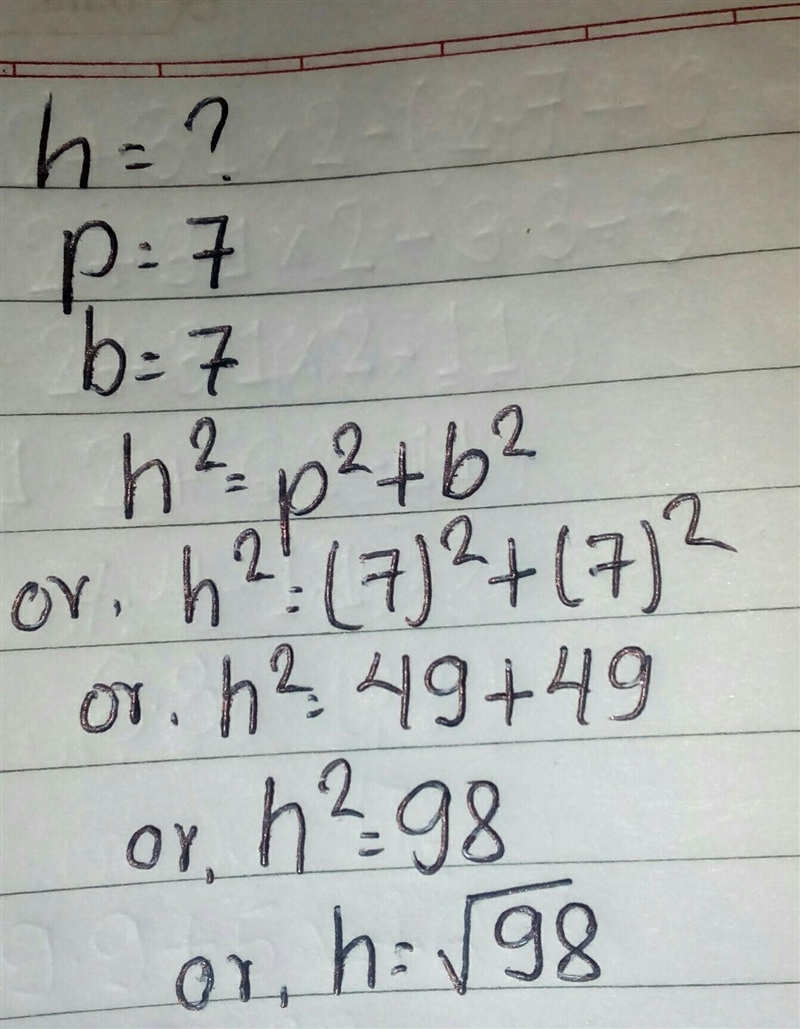 h = ?
p = 7
b = 7
h² = p² + b²
or, h² = (7)² + (7)²
or. h² = 49 + 49
or, h² = 98
or, h = √98